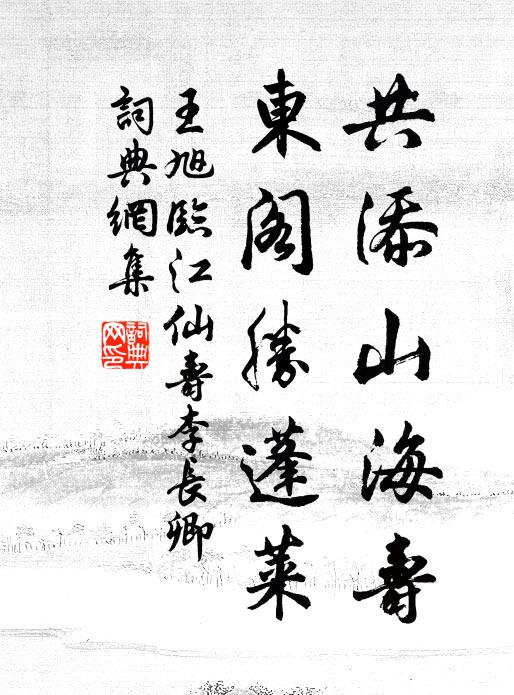 共添山海壽
東閣勝蓬萊
王旭臨江仙壽李長卿
詞典網集
詞典网印